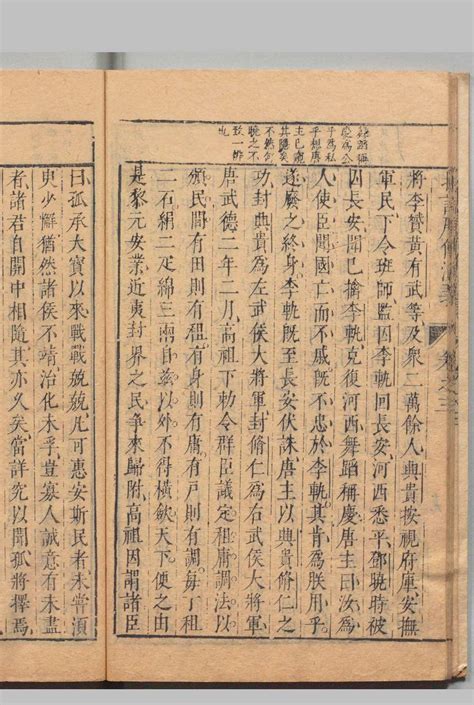 乎爲私
乎想唐
主已
其隱矣
不然何
曉之不
致一辨
也
將李贇黃有武等及衆二萬餘人典貴按視府庫安撫
軍民下令班師監囚李軌回長安河西悉平鄧曉時被
囚長安聞巳擒李軌克河西舞蹈稱慶唐主曰汝爲
人使臣聞國亡而不戚既不忠於李軌其肯爲朕用乎
遂廢之終身李軌既至長安伏誅唐主以典貴脩仁之
功封典貴爲左武侯大將軍封脩仁爲右武侯大將軍
唐武德二年二月高祖下勅令群臣議定租庸調法以
頒民間有田則有租有身則有庸有戶則有調每丁租
二石絹二疋綿三兩自兹以外不得橫歛天下使之由
是黎元安業近夷封界之民爭來歸附高祖因謂諸臣
曰孤承大寶以來戰戰兢兢凡可惠安斯民者未嘗須
臾少懈猶然諸侯不靖治化未孚豈寡人誠意有未盡
者諸君自開中相隨其亦久矣當詳究以聞孤將擇焉